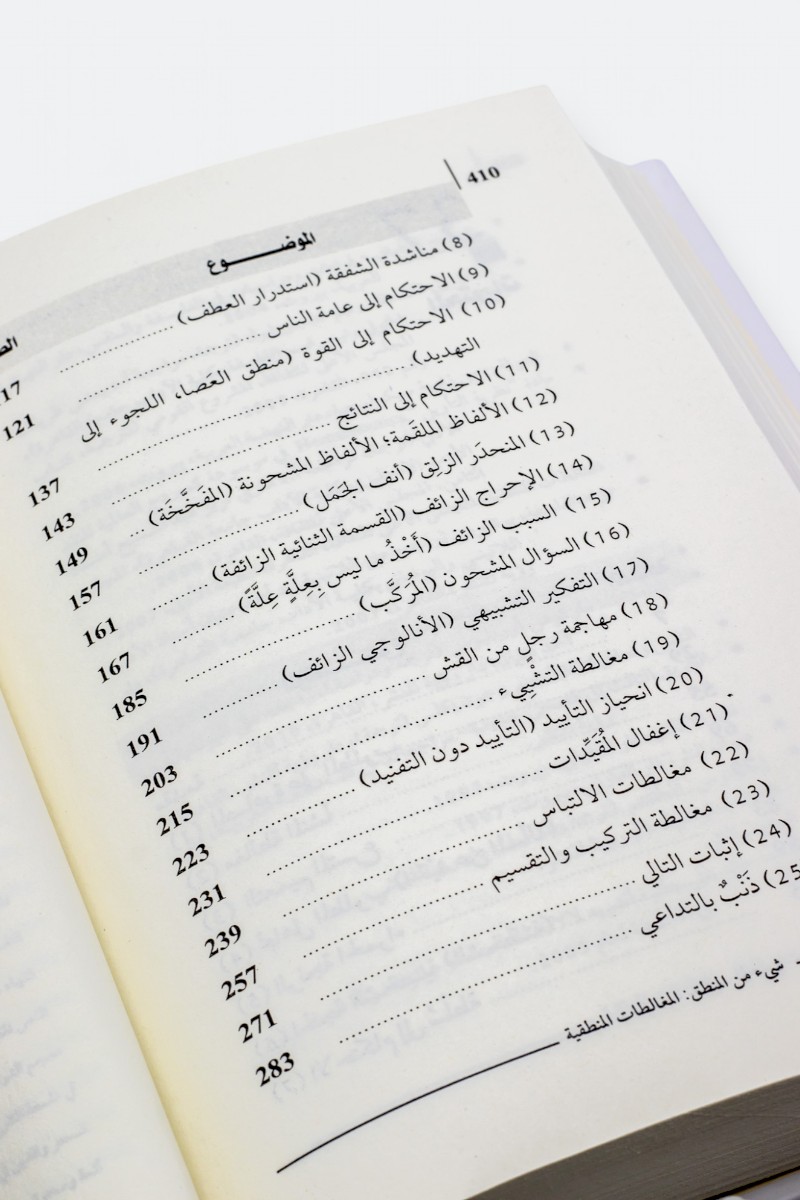 410
الموضـــــــوع
(8) مناشدة الشفقة (استدرار العطف) ........................
(9) الاحتكام إلى عامة الناس ........................ 121
(10) الاحتكام إلى القوة (منطق العَصا، اللجوء إلى
التهديد). ........................ 137
(11) الاحتكام إلى النتائج ........................ 143
(12) الألفاظ الملقَمة؛ الألفاظ المشحونة (المفَخَّخَة) ... 149
(13) المنحدَر الزلِق (أنف الجَمَل) ........................ 157
(14) الإحراج الزائف (القسمة الثنائية الزائفة) ............ 161
(15) السبب الزائف (أَخْذُ ما ليس بِعِلَّةٍ عِلَّةً) ............ 167
(16) السؤال المشحون (المُرَكَّب) ........................ 185
(17) التفكير التشبيهي (الأنالوجي الزائف) ............ 191
(18) مهاجمة رجلٍ من القش ........................ 203
(19) مغالطة التشْيِيء ........................ 215
(20) انحياز التأييد (التأييد دون التفنيد) ............ 223
(21) إغفال المُقَيِّدات ........................ 231
(22) مغالطات الالتباس ........................ 239
(23) مغالطة التركيب والتقسيم ........................ 257
(24) إثبات التالي ........................ 271
(25 ذَنْبٌ بالتداعي ........................ 283
شيء من المنطق: المغالطات المنطقية